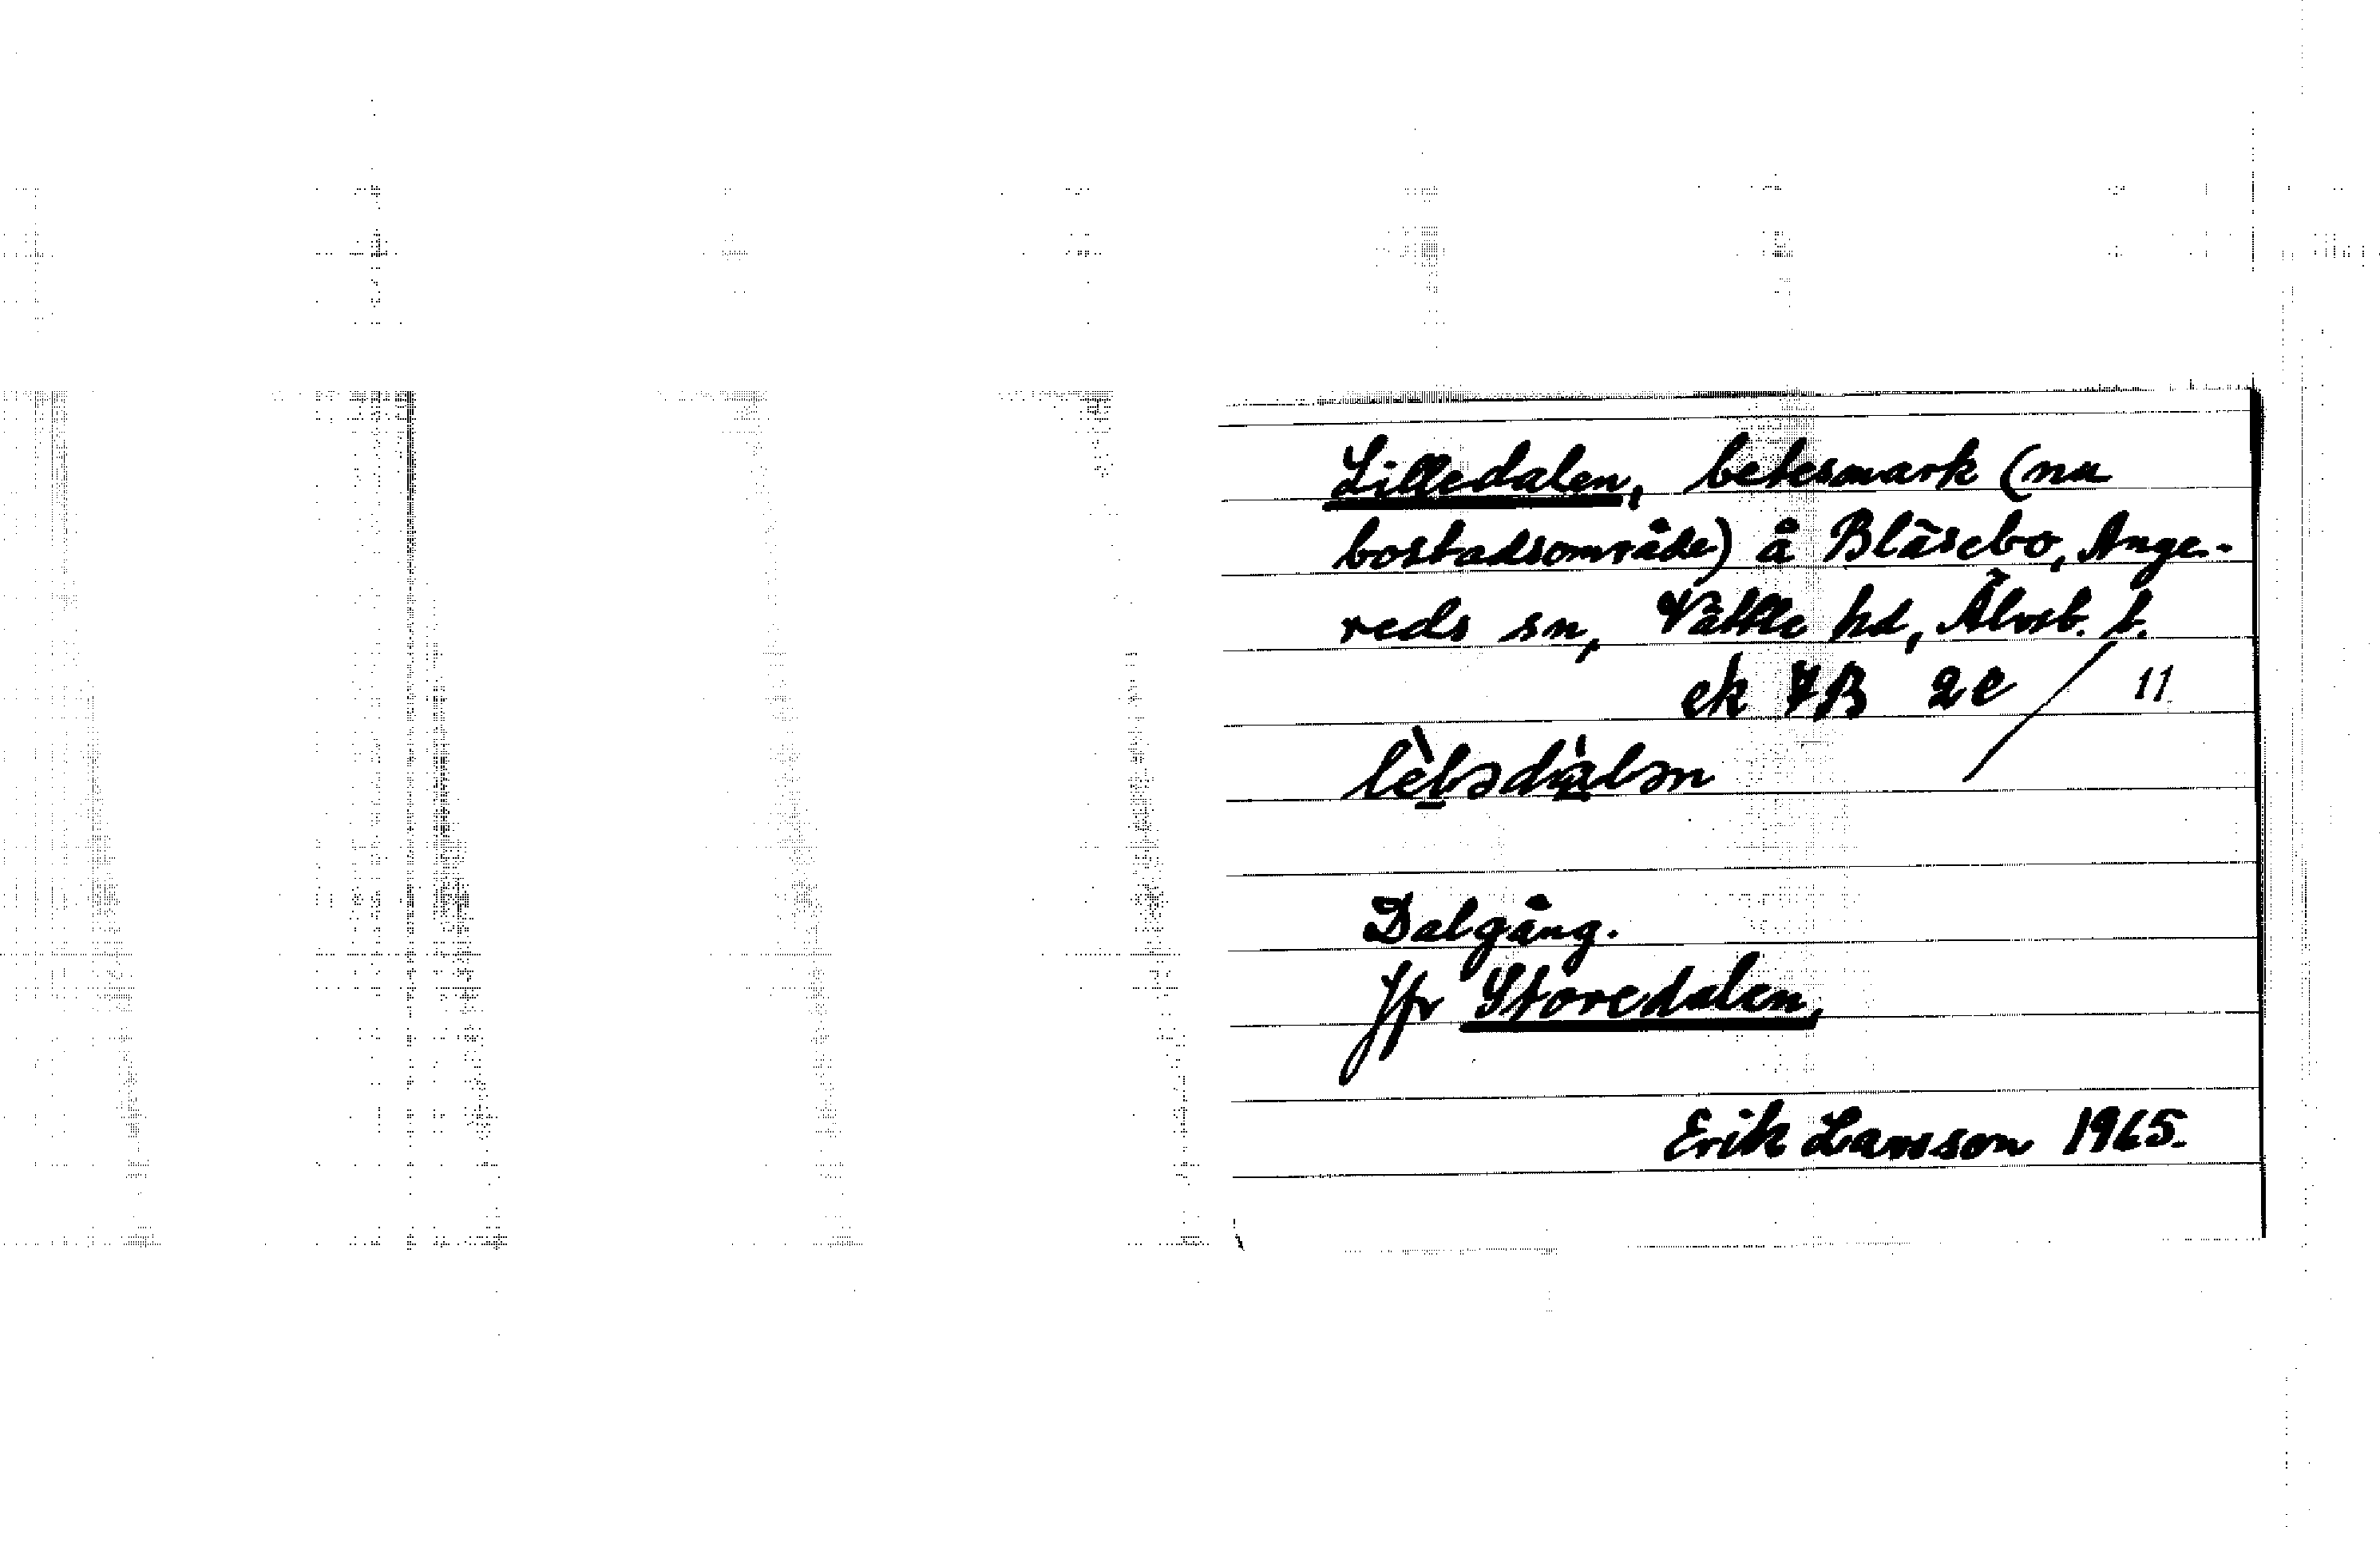 Lilledalen, betesmark (nu
bostadsområde) å Bläsebo, Ange-
reds sn, Vättle hd, Älvsb. l.
ek 7B 2c / 11
Dalgång.
Jfr Storedalen,
Erik Larsson 1965.